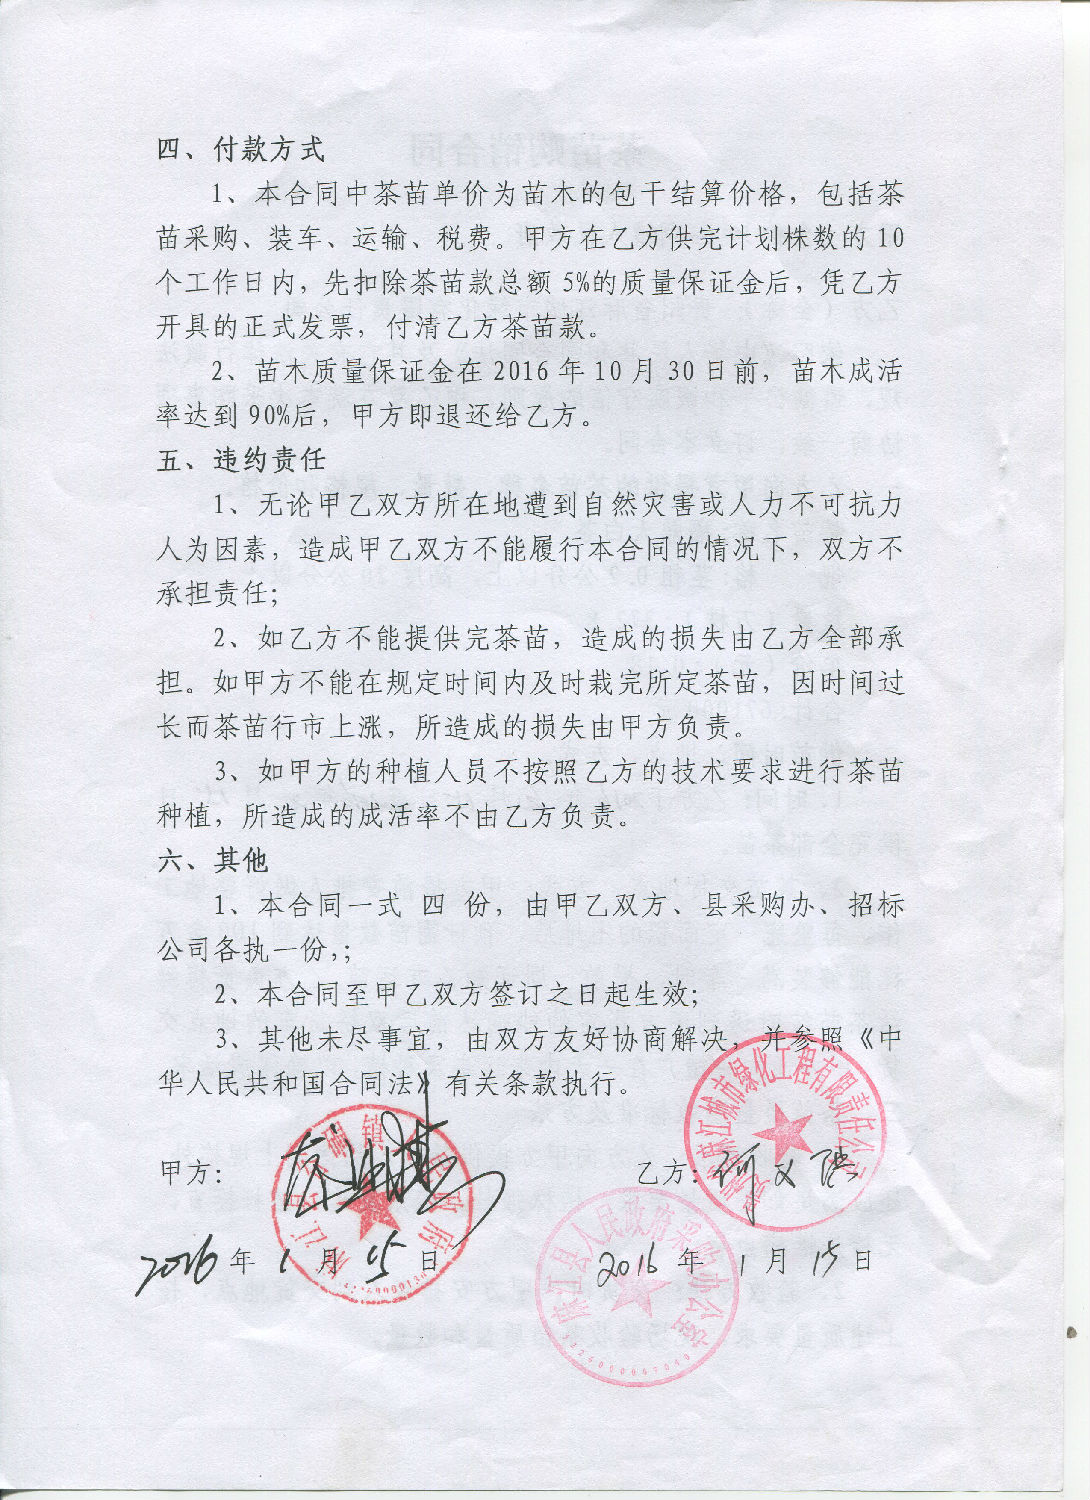 四、付款方式
1、本合同中茶苗单价为苗木的包干结算价格，包括茶
苗采购、装车、运输、税费。甲方在乙方供完计划株数的10
个工作日内，先扣除茶苗款总额5%的质量保证金后，凭乙方
开具的正式发票，付清乙方茶苗款。
2、苗木质量保证金在2016年10月30日前，苗木成活
率达到90%后，甲方即退还给乙方。
五、违约责任
1、无论甲乙双方所在地遭到自然灾害或人力不可抗力
人为因素，造成甲乙双方不能履行本合同的情况下，双方不
承担责任；
2、如乙方不能提供完茶苗，造成的损失由乙方全部承
担。如甲方不能在规定时间内及时栽完所定茶苗，因时间过
长而茶苗行市上涨，所造成的损失由甲方负责。
3、如甲方的种植人员不按照乙方的技术要求进行茶苗
种植，所造成的成活率不由乙方负责。
六、其他
1、本合同一式 四 份，由甲乙双方、县采购办、招标
公司各执一份，；
2、本合同至甲乙双方签订之日起生效；
3、其他未尽事宜，由双方友好协商解决，并参照《中
华人民共和国合同法》有关条款执行。
甲方：
乙方：
2016年1月15日
2016年1月15日
麻江城市绿化工程有限责任公司
麻江县人民政府采购办公室